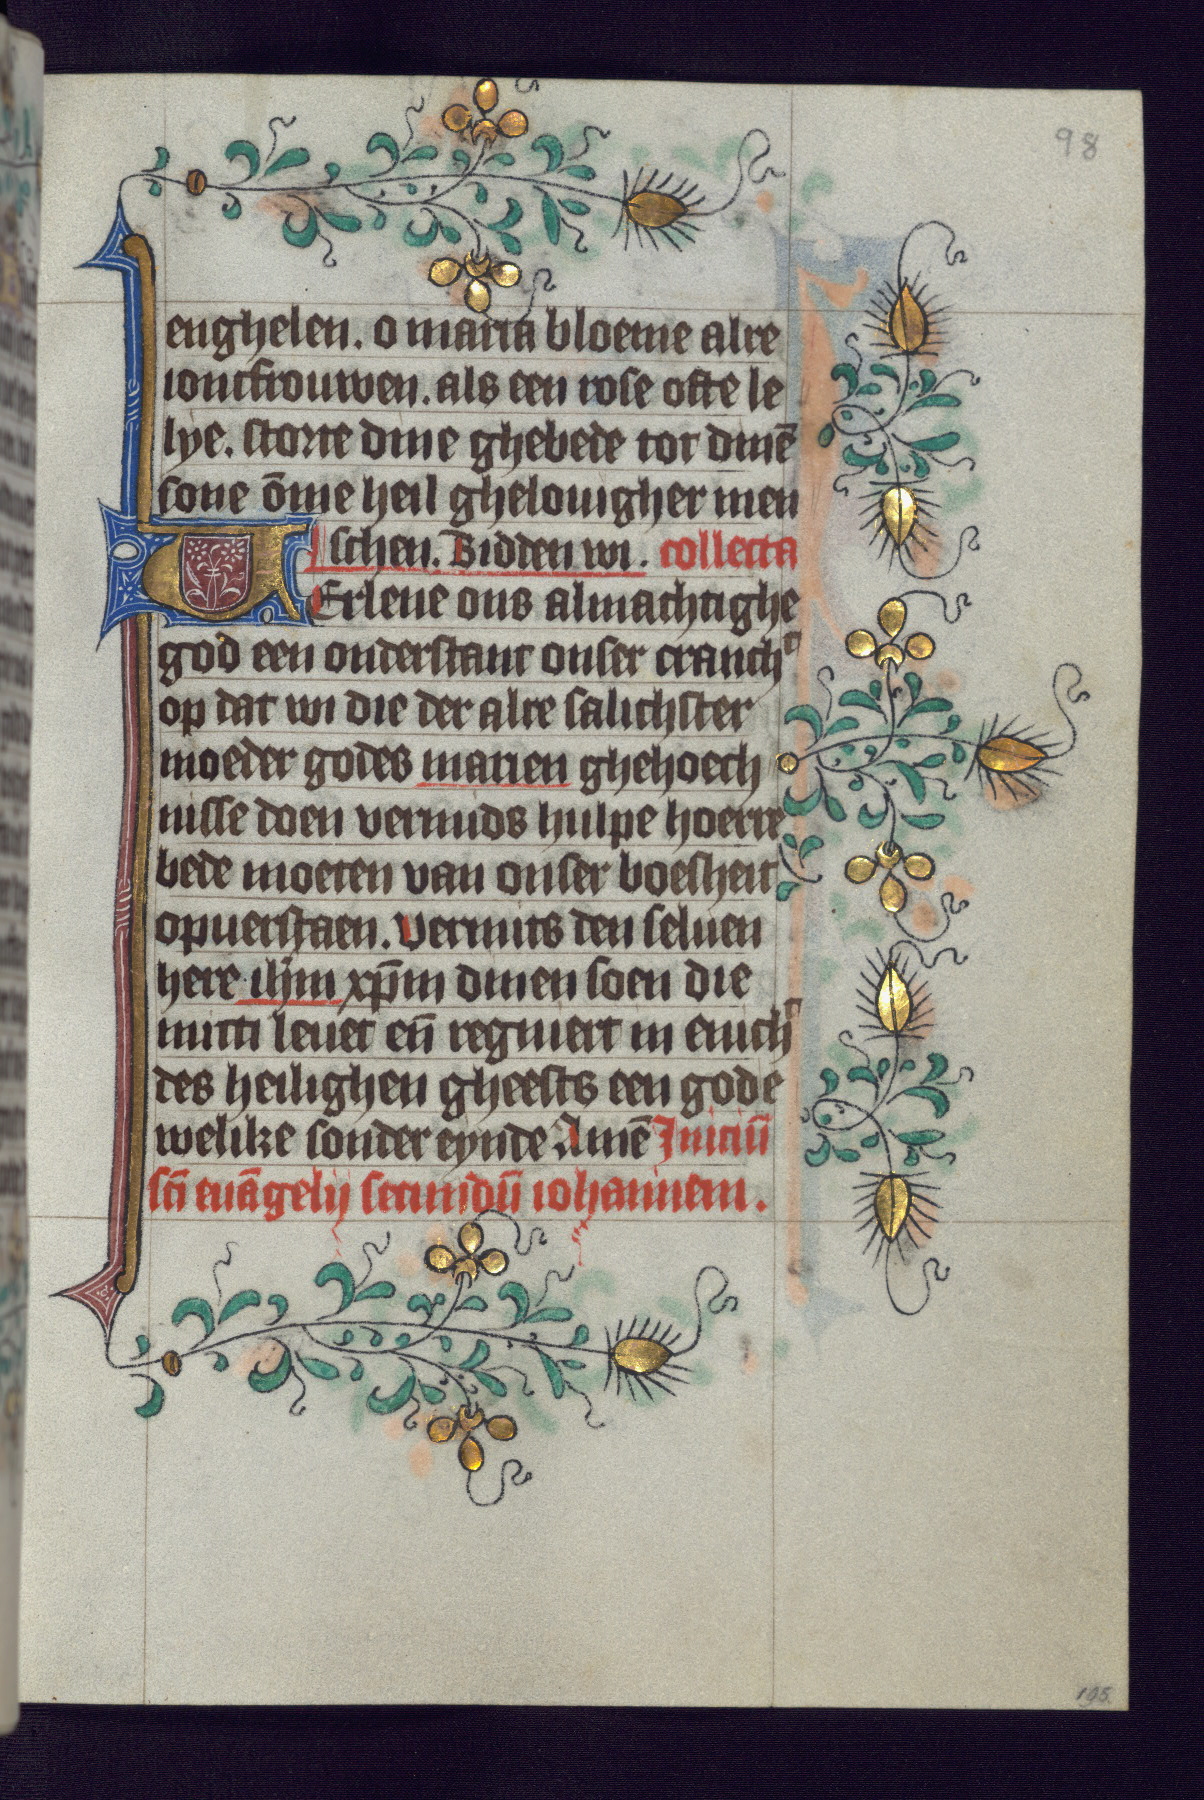 98
enghelen. o maria bloeme alre
ioncfrouwen. als een rose ofte le
lye. storte dine ghebede tot dinē
sone ō̄me heil ghelouigher men
schen. Bidden wi. collecta
VErlene ons almachtighe
god een onderstant onser cranch't
op dat wi die der alre salichster
moeder godes marien ghehoech
nisse doen vermids hulpe hoerre
bede moeten van onser boesheit
opuerstaen. Vermits den seluen
here ihm xpm dinen soen die
mitti leuet en̄ regniert in enich't
des heilighen gheests een gode
welike sonder eynde Amē Iniciū
sc̄i euāgelij secundū iohannem.
195